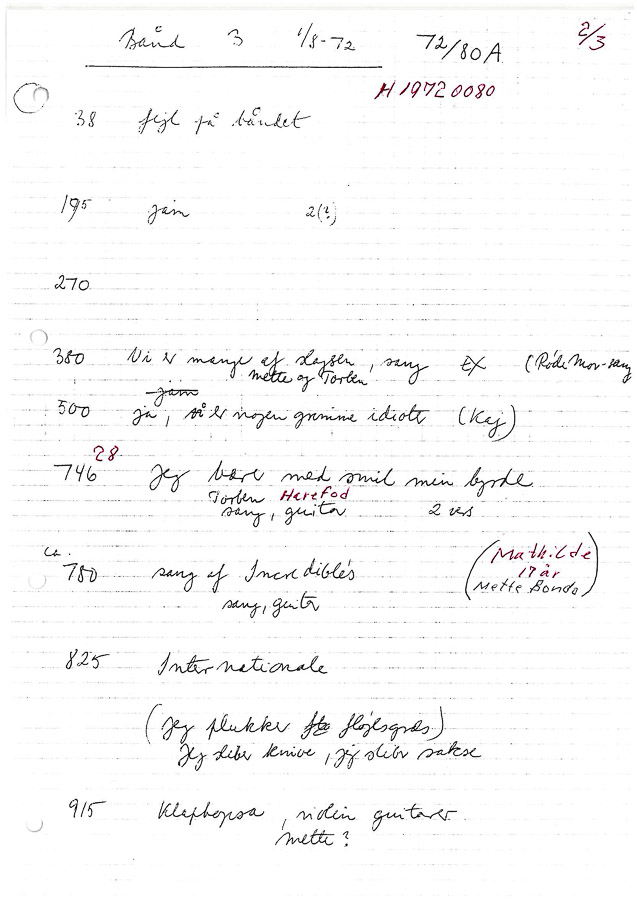 Bånd 3 1/8-72 72/80A 2/3
H 1972 0080
38 fejl på båndet
195 jam 2(?)
270
380 Vi er mange af slagsen, sang EX (Røde Mor-sang
Mette og Torben
jam
500 ja, er nogen grimme idiotr (Kaj)
28
746 Jeg bære med smil min byrde
Torben Harefod
sang, guitar 2 vers
ca.
780 sang af Incredible's (Mathilde
17 år
sang, guitar Mette Bonds)
825 Internationale
(Jeg plukker fløjlsgræs)
Jeg sliber knive, jeg sliber sakse
915 Klaphopsa, violin guitarer
Mette?